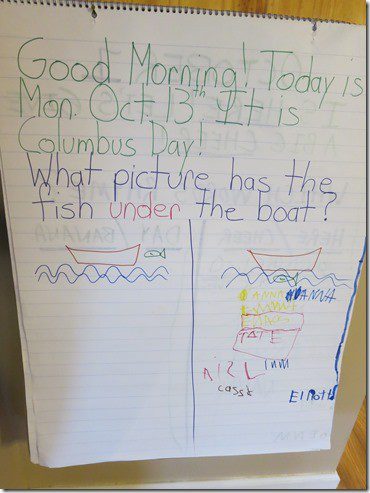 Good Morning! Today is
Mon. Oct. 13th. It is
Columbus Day!
What picture has the
fish under the boat?
ANNA
TATE
Elliott